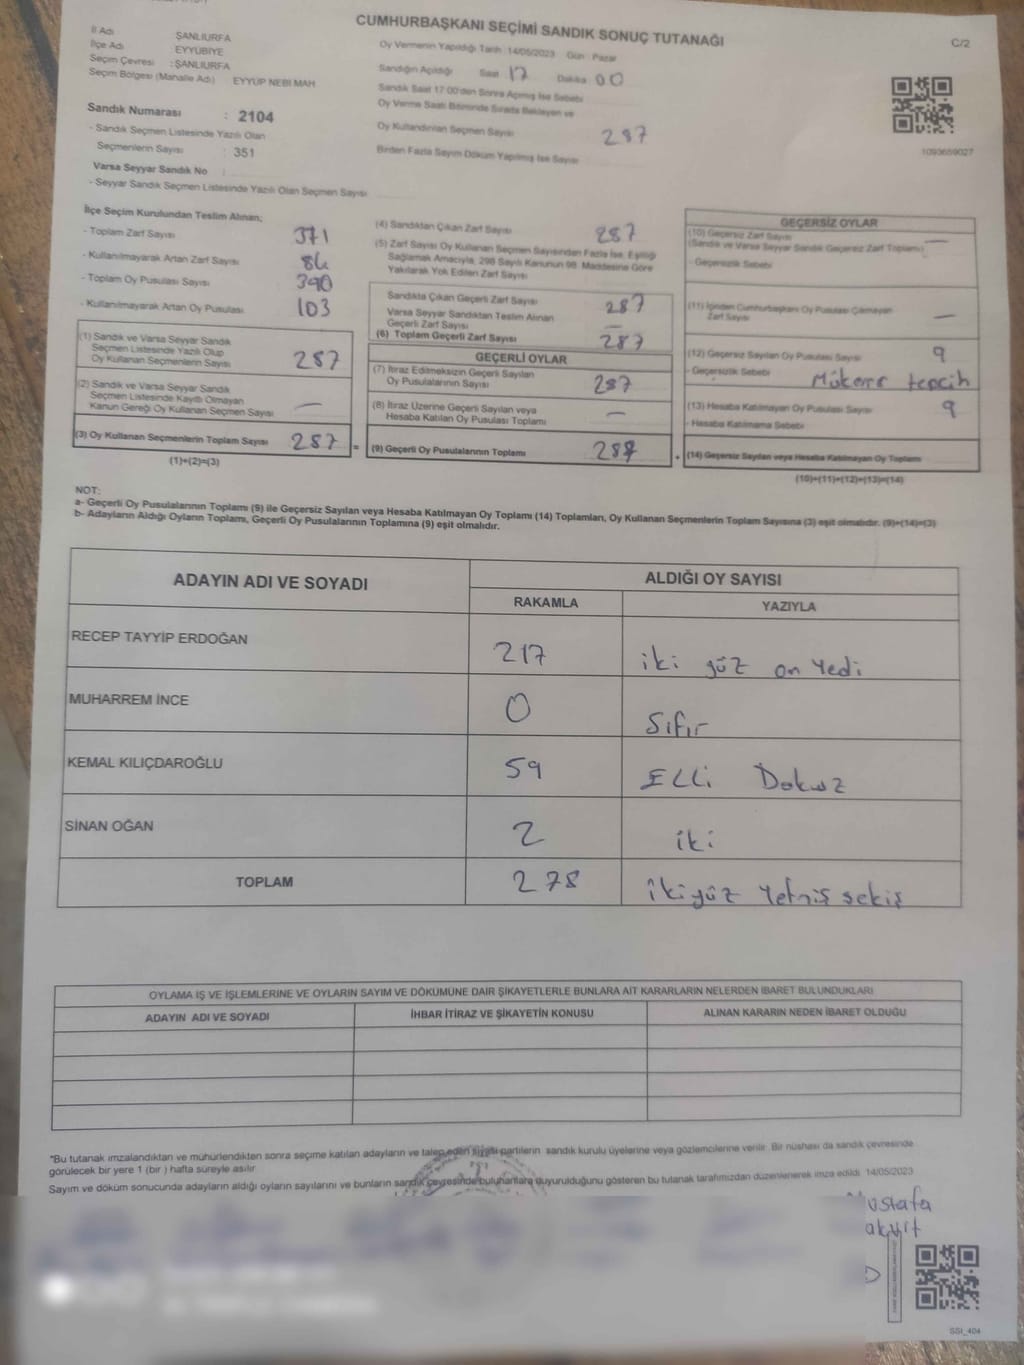 CUMHURBAŞKANI SEÇİMİ SANDIK SONUÇ TUTANAĞI
C/2
İl Adı ŞANLIURFA
İlçe Adı EYYÜBİYE
Seçim Çevresi : ŞANLIURFA
Seçim Bölgesi (Mahalle Adı) EYYÜP NEBİ MAH
Oy Vermenin Yapıldığı Tarih :14/05/2023 Gün : Pazar
Sandığın Açıldığı Saat 17 Dakika 00
Sandık Saat 17:00'den Sonra Açılmış İse Sebebi
Oy Verme Saati Bitiminde Sırada Bekleyen ve
Oy Kullandırılan Seçmen Sayısı 287
Birden Fazla Sayım Döküm Yapılmış İse Sayısı
1093659027
Sandık Numarası : 2104
- Sandık Seçmen Listesinde Yazılı Olan
Seçmenlerin Sayısı : 351
Varsa Seyyar Sandık No :
- Seyyar Sandık Seçmen Listesinde Yazılı Olan Seçmen Sayısı
İlçe Seçim Kurulundan Teslim Alınan;
- Toplam Zarf Sayısı 371
- Kullanılmayarak Artan Zarf Sayısı 84
- Toplam Oy Pusulası Sayısı 390
- Kullanılmayarak Artan Oy Pusulası 103
(1) Sandık ve Varsa Seyyar Sandık
Seçmen Listesinde Yazılı Olup
Oy Kullanan Seçmenlerin Sayısı 287
(2) Sandık ve Varsa Seyyar Sandık
Seçmen Listesinde Kayıtlı Olmayan
Kanun Gereği Oy Kullanan Seçmen Sayısı —
(3) Oy Kullanan Seçmenlerin Toplam Sayısı 287 =
(1)+(2)=(3)
(4) Sandıktan Çıkan Zarf Sayısı 287
(5) Zarf Sayısı Oy Kullanan Seçmen Sayısından Fazla İse, Eşitliği
Sağlamak Amacıyla, 298 Sayılı Kanunun 98. Maddesine Göre
Yakılarak Yok Edilen Zarf Sayısı
Sandıkta Çıkan Geçerli Zarf Sayısı 287
Varsa Seyyar Sandıktan Teslim Alınan
Geçerli Zarf Sayısı —
(6) Toplam Geçerli Zarf Sayısı 287
GEÇERLİ OYLAR
(7) İtiraz Edilmeksizin Geçerli Sayılan
Oy Pusulalarının Sayısı 287
(8) İtiraz Üzerine Geçerli Sayılan veya
Hesaba Katılan Oy Pusulası Toplamı —
(9) Geçerli Oy Pusulalarının Toplamı 287 +
GEÇERSİZ OYLAR
(10) Geçersiz Zarf Sayısı —
(Sandık ve Varsa Seyyar Sandık Geçersiz Zarf Toplamı)
- Geçersizlik Sebebi
(11) İçinden Cumhurbaşkanı Oy Pusulası Çıkmayan
Zarf Sayısı —
(12) Geçersiz Sayılan Oy Pusulası Sayısı 9
- Geçersizlik Sebebi Mükerrer tercih
(13) Hesaba Katılmayan Oy Pusulası Sayısı 9
- Hesaba Katılmama Sebebi
(14) Geçersiz Sayılan veya Hesaba Katılmayan Oy Toplamı
(10)+(11)+(12)+(13)=(14)
NOT:
a- Geçerli Oy Pusulalarının Toplamı (9) ile Geçersiz Sayılan veya Hesaba Katılmayan Oy Toplamı (14) Toplamları, Oy Kullanan Seçmenlerin Toplam Sayısına (3) eşit olmalıdır. (9)+(14)=(3)
b- Adayların Aldığı Oyların Toplamı, Geçerli Oy Pusulalarının Toplamına (9) eşit olmalıdır.
ADAYIN ADI VE SOYADI ALDIĞI OY SAYISI
RAKAMLA YAZIYLA
RECEP TAYYİP ERDOĞAN 217 iki yüz on yedi
MUHARREM İNCE 0 Sıfır
KEMAL KILIÇDAROĞLU 59 Elli Dokuz
SİNAN OĞAN 2 iki
TOPLAM 278 ikiyüz yetmiş sekiş
OYLAMA İŞ VE İŞLEMLERİNE VE OYLARIN SAYIM VE DÖKÜMÜNE DAİR ŞİKAYETLERLE BUNLARA AİT KARARLARIN NELERDEN İBARET BULUNDUKLARI
ADAYIN ADI VE SOYADI İHBAR İTİRAZ VE ŞİKAYETİN KONUSU ALINAN KARARIN NEDEN İBARET OLDUĞU
*Bu tutanak imzalandıktan ve mühürlendikten sonra seçime katılan adayların ve talep eden siyasi partilerin sandık kurulu üyelerine veya gözlemcilerine verilir. Bir nüshası da sandık çevresinde
görülecek bir yere 1 (bir ) hafta süreyle asılır.
Sayım ve döküm sonucunda adayların aldığı oyların sayılarını ve bunların sandık çevresinde bulunanlara duyurulduğunu gösteren bu tutanak tarafımızdan düzenlenerek imza edildi. 14/05/2023
Mustafa
akyıt
SSI_404